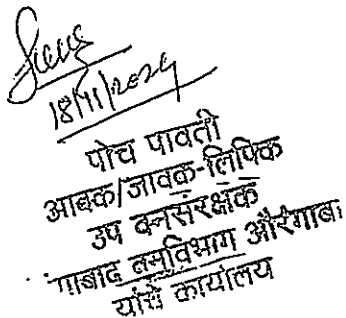 18/11/2024
पोच पावती
आवक/जावक-लिपिक
उप वनसंरक्षक
गाबाद वनविभाग औरंगाबा
यांचे कार्यालय